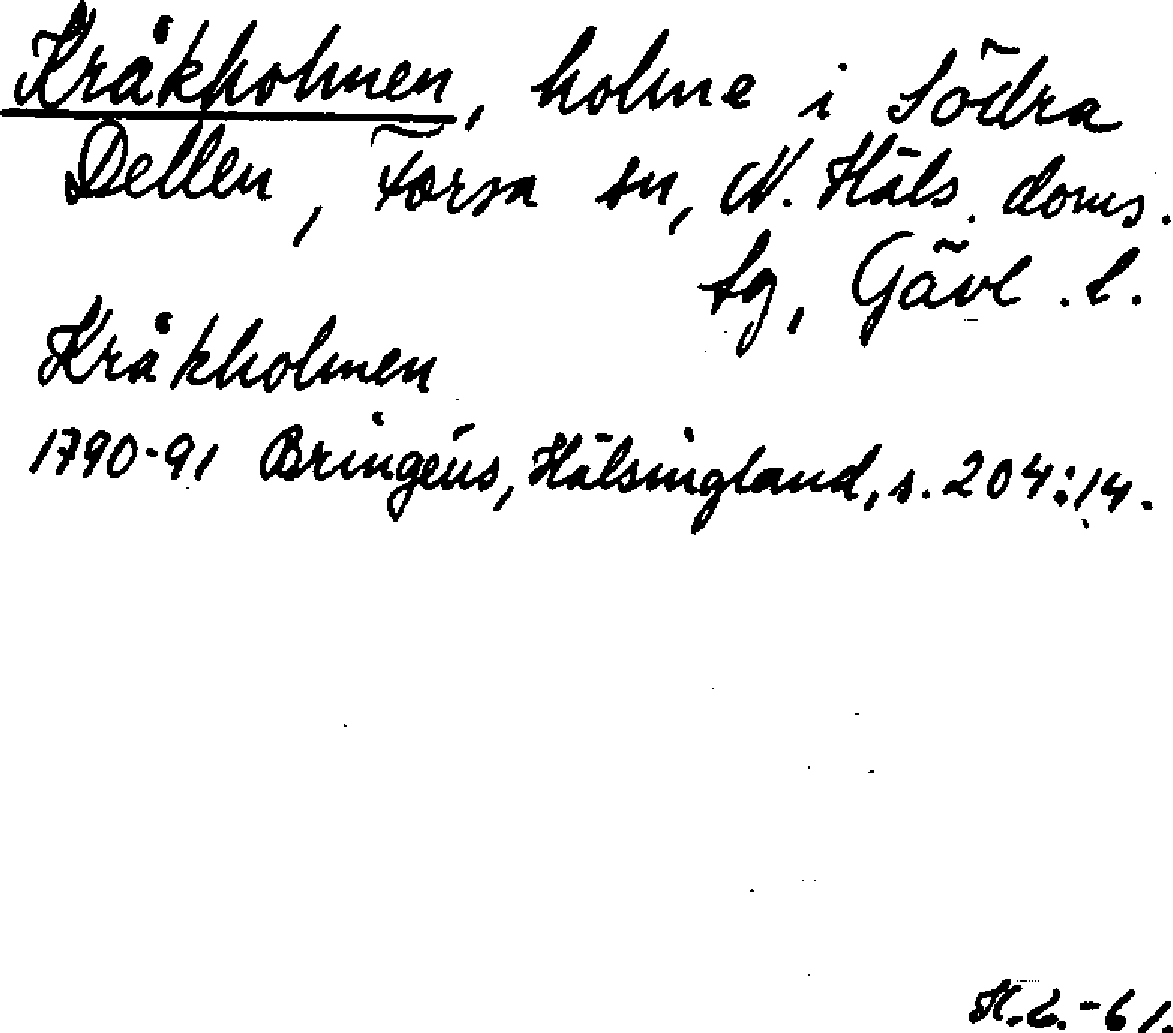 Kråkholmen, holme i Södra
Dellen, Forsa sn, N. Häls. doms.
sg, Gävl. l.
Kråkholmen
1790-91 Bringéus, Hälsingland, s. 204:14.
H.L.-61